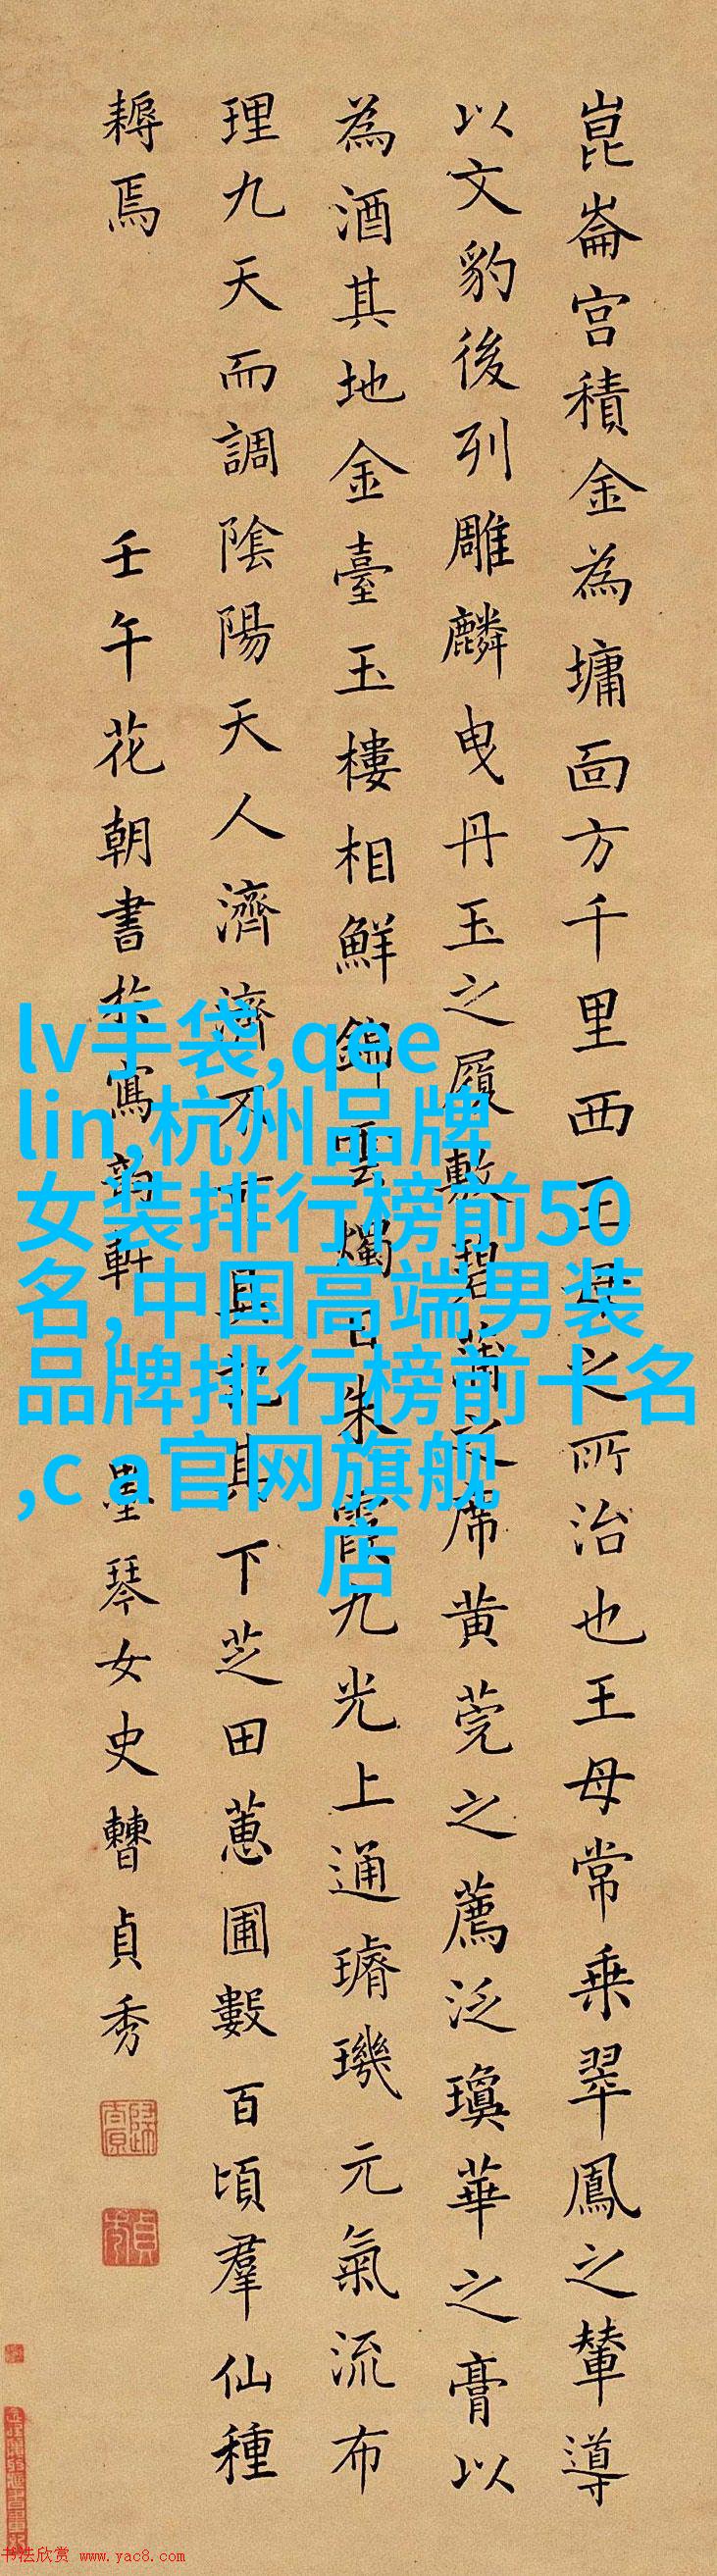 崑崙宫積金為墉面方千里西王母之所治也王母常乗翠鳳之輦導
以文豹後列雕麟曳丹玉之履敷碧蒲之席黄莞之薦泛瓊華之膏以
為酒其地金臺玉樓相鮮錦雲燭日朱霞九光上通璿璣元氣流布
理九天而調陰陽天人濟濟不可具記其下芝田蕙圃數百頃羣仙種
耨焉
壬午花朝書於寫韵軒 墨琴女史曹貞秀
lv手袋,qee
lin,杭州品牌
女装排行榜前50
名,中国高端男装
品牌排行榜前十名
,c a官网旗舰
店
书法欣赏 www.yac8.com